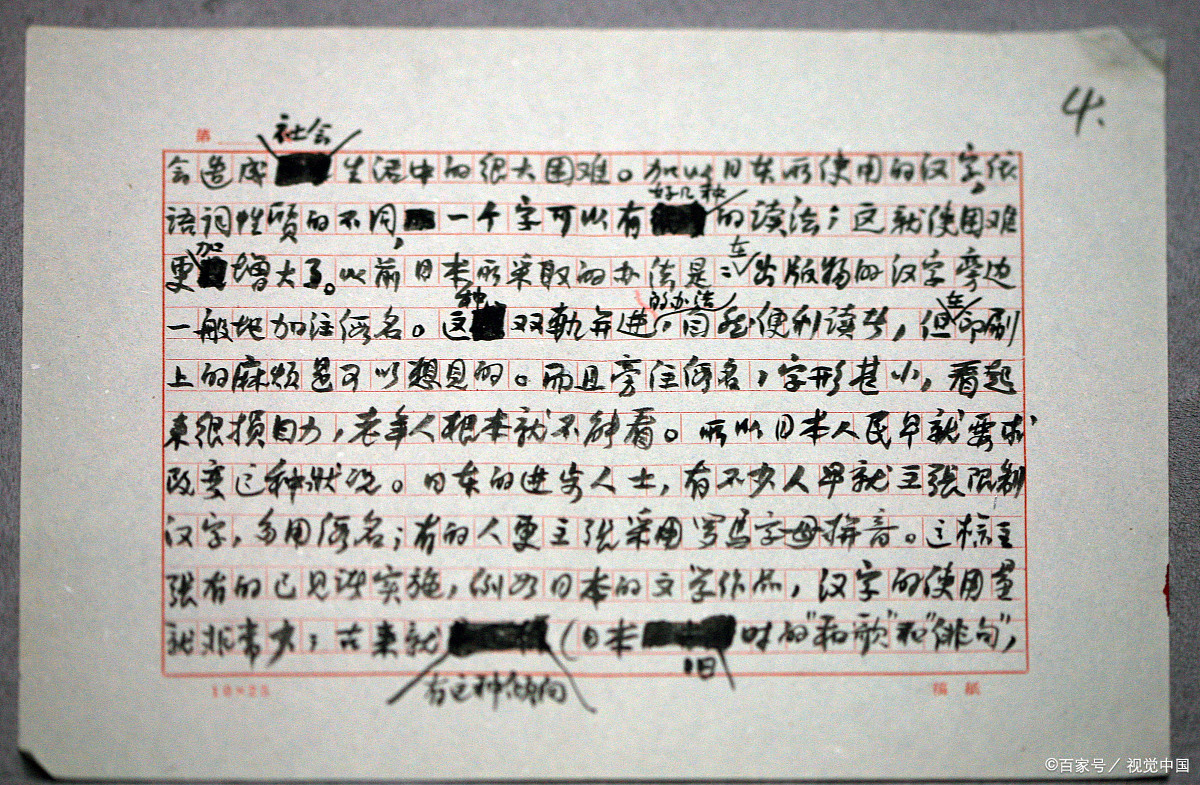 4.
第
社会
会造成生活中的很大困难。加以日本所使用的汉字，依
好几种
语词性质的不同，一个字可以有的读法；这就使困难
加 在
更增大了。以前日本所采取的办法是：出版物的汉字旁边
种 的办法 在
一般地加注假名。这双轨并进，自然便利读者，但印刷
上的麻烦是可以想见的。而且旁注假名，字形甚小，看起
来很损目力，老年人根本就不能看。所以日本人民早就要求
改变这种状况。日本的进步人士，有不少人早就主张限制
汉字，多用假名；有的人更主张采用罗马字母拼音。这种主
张有的已见诸实施，例如日本的文学作品，汉字的使用量
就非常少；古来就（日本时的"和歌"和"俳句"，
旧
有这种倾向
10×25 稿纸
©百家号／视觉中国